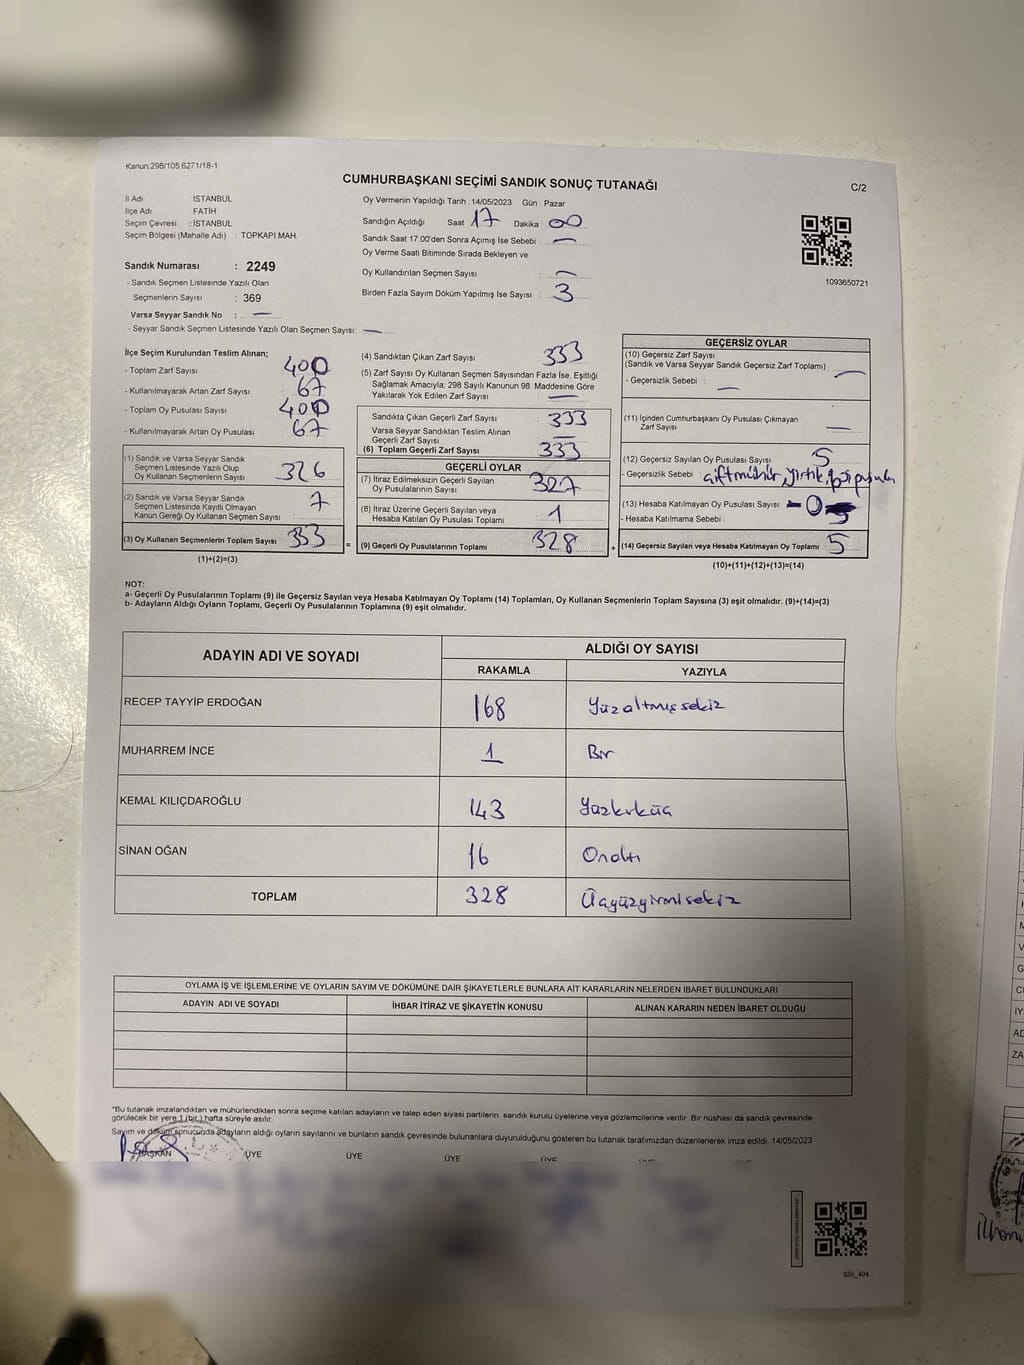 Kanun.298/105,6271/18-1
CUMHURBAŞKANI SEÇİMİ SANDIK SONUÇ TUTANAĞI
C/2
İl Adı : İSTANBUL
İlçe Adı : FATİH
Seçim Çevresi : İSTANBUL
Seçim Bölgesi (Mahalle Adı) : TOPKAPI MAH.
Oy Vermenin Yapıldığı Tarih : 14/05/2023 Gün : Pazar
Sandığın Açıldığı Saat : 17 Dakika : 00
Sandık Saat 17:00'den Sonra Açımış İse Sebebi : —
Oy Verme Saati Bitiminde Sırada Bekleyen ve
Oy Kullandırılan Seçmen Sayısı : —
Birden Fazla Sayım Döküm Yapılmış İse Sayısı : 3
1093650721
Sandık Numarası : 2249
- Sandık Seçmen Listesinde Yazılı Olan
Seçmenlerin Sayısı : 369
Varsa Seyyar Sandık No : —
- Seyyar Sandık Seçmen Listesinde Yazılı Olan Seçmen Sayısı: —
İlçe Seçim Kurulundan Teslim Alınan;
- Toplam Zarf Sayısı : 400
- Kullanılmayarak Artan Zarf Sayısı : 67
- Toplam Oy Pusulası Sayısı : 400
- Kullanılmayarak Artan Oy Pusulası : 67
(1) Sandık ve Varsa Seyyar Sandık
Seçmen Listesinde Yazılı Olup
Oy Kullanan Seçmenlerin Sayısı : 326
(2) Sandık ve Varsa Seyyar Sandık
Seçmen Listesinde Kayıtlı Olmayan
Kanun Gereği Oy Kullanan Seçmen Sayısı : 7
(3) Oy Kullanan Seçmenlerin Toplam Sayısı : 333
(1)+(2)=(3)
(4) Sandıktan Çıkan Zarf Sayısı : 333
(5) Zarf Sayısı Oy Kullanan Seçmen Sayısından Fazla İse, Eşitliği
Sağlamak Amacıyla; 298 Sayılı Kanunun 98. Maddesine Göre
Yakılarak Yok Edilen Zarf Sayısı : —
Sandıkta Çıkan Geçerli Zarf Sayısı : 333
Varsa Seyyar Sandıktan Teslim Alınan
Geçerli Zarf Sayısı : —
(6) Toplam Geçerli Zarf Sayısı : 333
GEÇERLİ OYLAR
(7) İtiraz Edilmeksizin Geçerli Sayılan
Oy Pusulalarının Sayısı : 327
(8) İtiraz Üzerine Geçerli Sayılan veya
Hesaba Katılan Oy Pusulası Toplamı : 1
= (9) Geçerli Oy Pusulalarının Toplamı : 328 +
GEÇERSİZ OYLAR
(10) Geçersiz Zarf Sayısı
(Sandık ve Varsa Seyyar Sandık Geçersiz Zarf Toplamı) : —
- Geçersizlik Sebebi : —
(11) İçinden Cumhurbaşkanı Oy Pusulası Çıkmayan
Zarf Sayısı : —
(12) Geçersiz Sayılan Oy Pusulası Sayısı : 5
- Geçersizlik Sebebi : çift mühür, yırtık,
(13) Hesaba Katılmayan Oy Pusulası Sayısı : -0
- Hesaba Katılmama Sebebi :
(14) Geçersiz Sayılan veya Hesaba Katılmayan Oy Toplamı : 5
(10)+(11)+(12)+(13)=(14)
NOT:
a- Geçerli Oy Pusulalarının Toplamı (9) ile Geçersiz Sayılan veya Hesaba Katılmayan Oy Toplamı (14) Toplamları, Oy Kullanan Seçmenlerin Toplam Sayısına (3) eşit olmalıdır. (9)+(14)=(3)
b- Adayların Aldığı Oyların Toplamı, Geçerli Oy Pusulalarının Toplamına (9) eşit olmalıdır.
ADAYIN ADI VE SOYADI
ALDIĞI OY SAYISI
RAKAMLA YAZIYLA
RECEP TAYYİP ERDOĞAN 168 Yüzaltmışsekiz
MUHARREM İNCE 1 Bir
KEMAL KILIÇDAROĞLU 143 Yüzkırküç
SİNAN OĞAN 16 Onaltı
TOPLAM 328 Üçyüzyirmisekiz
OYLAMA İŞ VE İŞLEMLERİNE VE OYLARIN SAYIM VE DÖKÜMÜNE DAİR ŞİKAYETLERLE BUNLARA AİT KARARLARIN NELERDEN İBARET BULUNDUKLARI
ADAYIN ADI VE SOYADI İHBAR İTİRAZ VE ŞİKAYETİN KONUSU ALINAN KARARIN NEDEN İBARET OLDUĞU
*Bu tutanak imzalandıktan ve mühürlendikten sonra seçime katılan adayların ve talep eden siyasi partilerin sandık kurulu üyelerine veya gözlemcilerine verilir. Bir nüshası da sandık çevresinde
görülecek bir yere 1 (bir) hafta süreyle asılır.
Sayım ve döküm sonucunda adayların aldığı oyların sayılarını ve bunların sandık çevresinde bulunanlara duyurulduğunu gösteren bu tutanak tarafımızdan düzenlenerek imza edildi. 14/05/2023
BAŞKAN ÜYE ÜYE ÜYE ÜYE
SSI_404